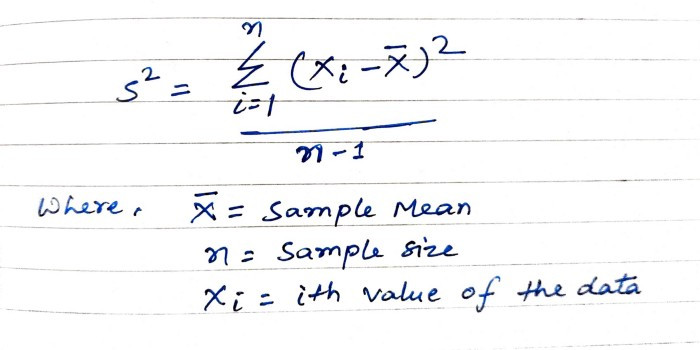 s² = n∑i=1 (xi − x̄)²
n−1
Where, x̄ = Sample Mean
n = Sample size
xi = ith value of the data